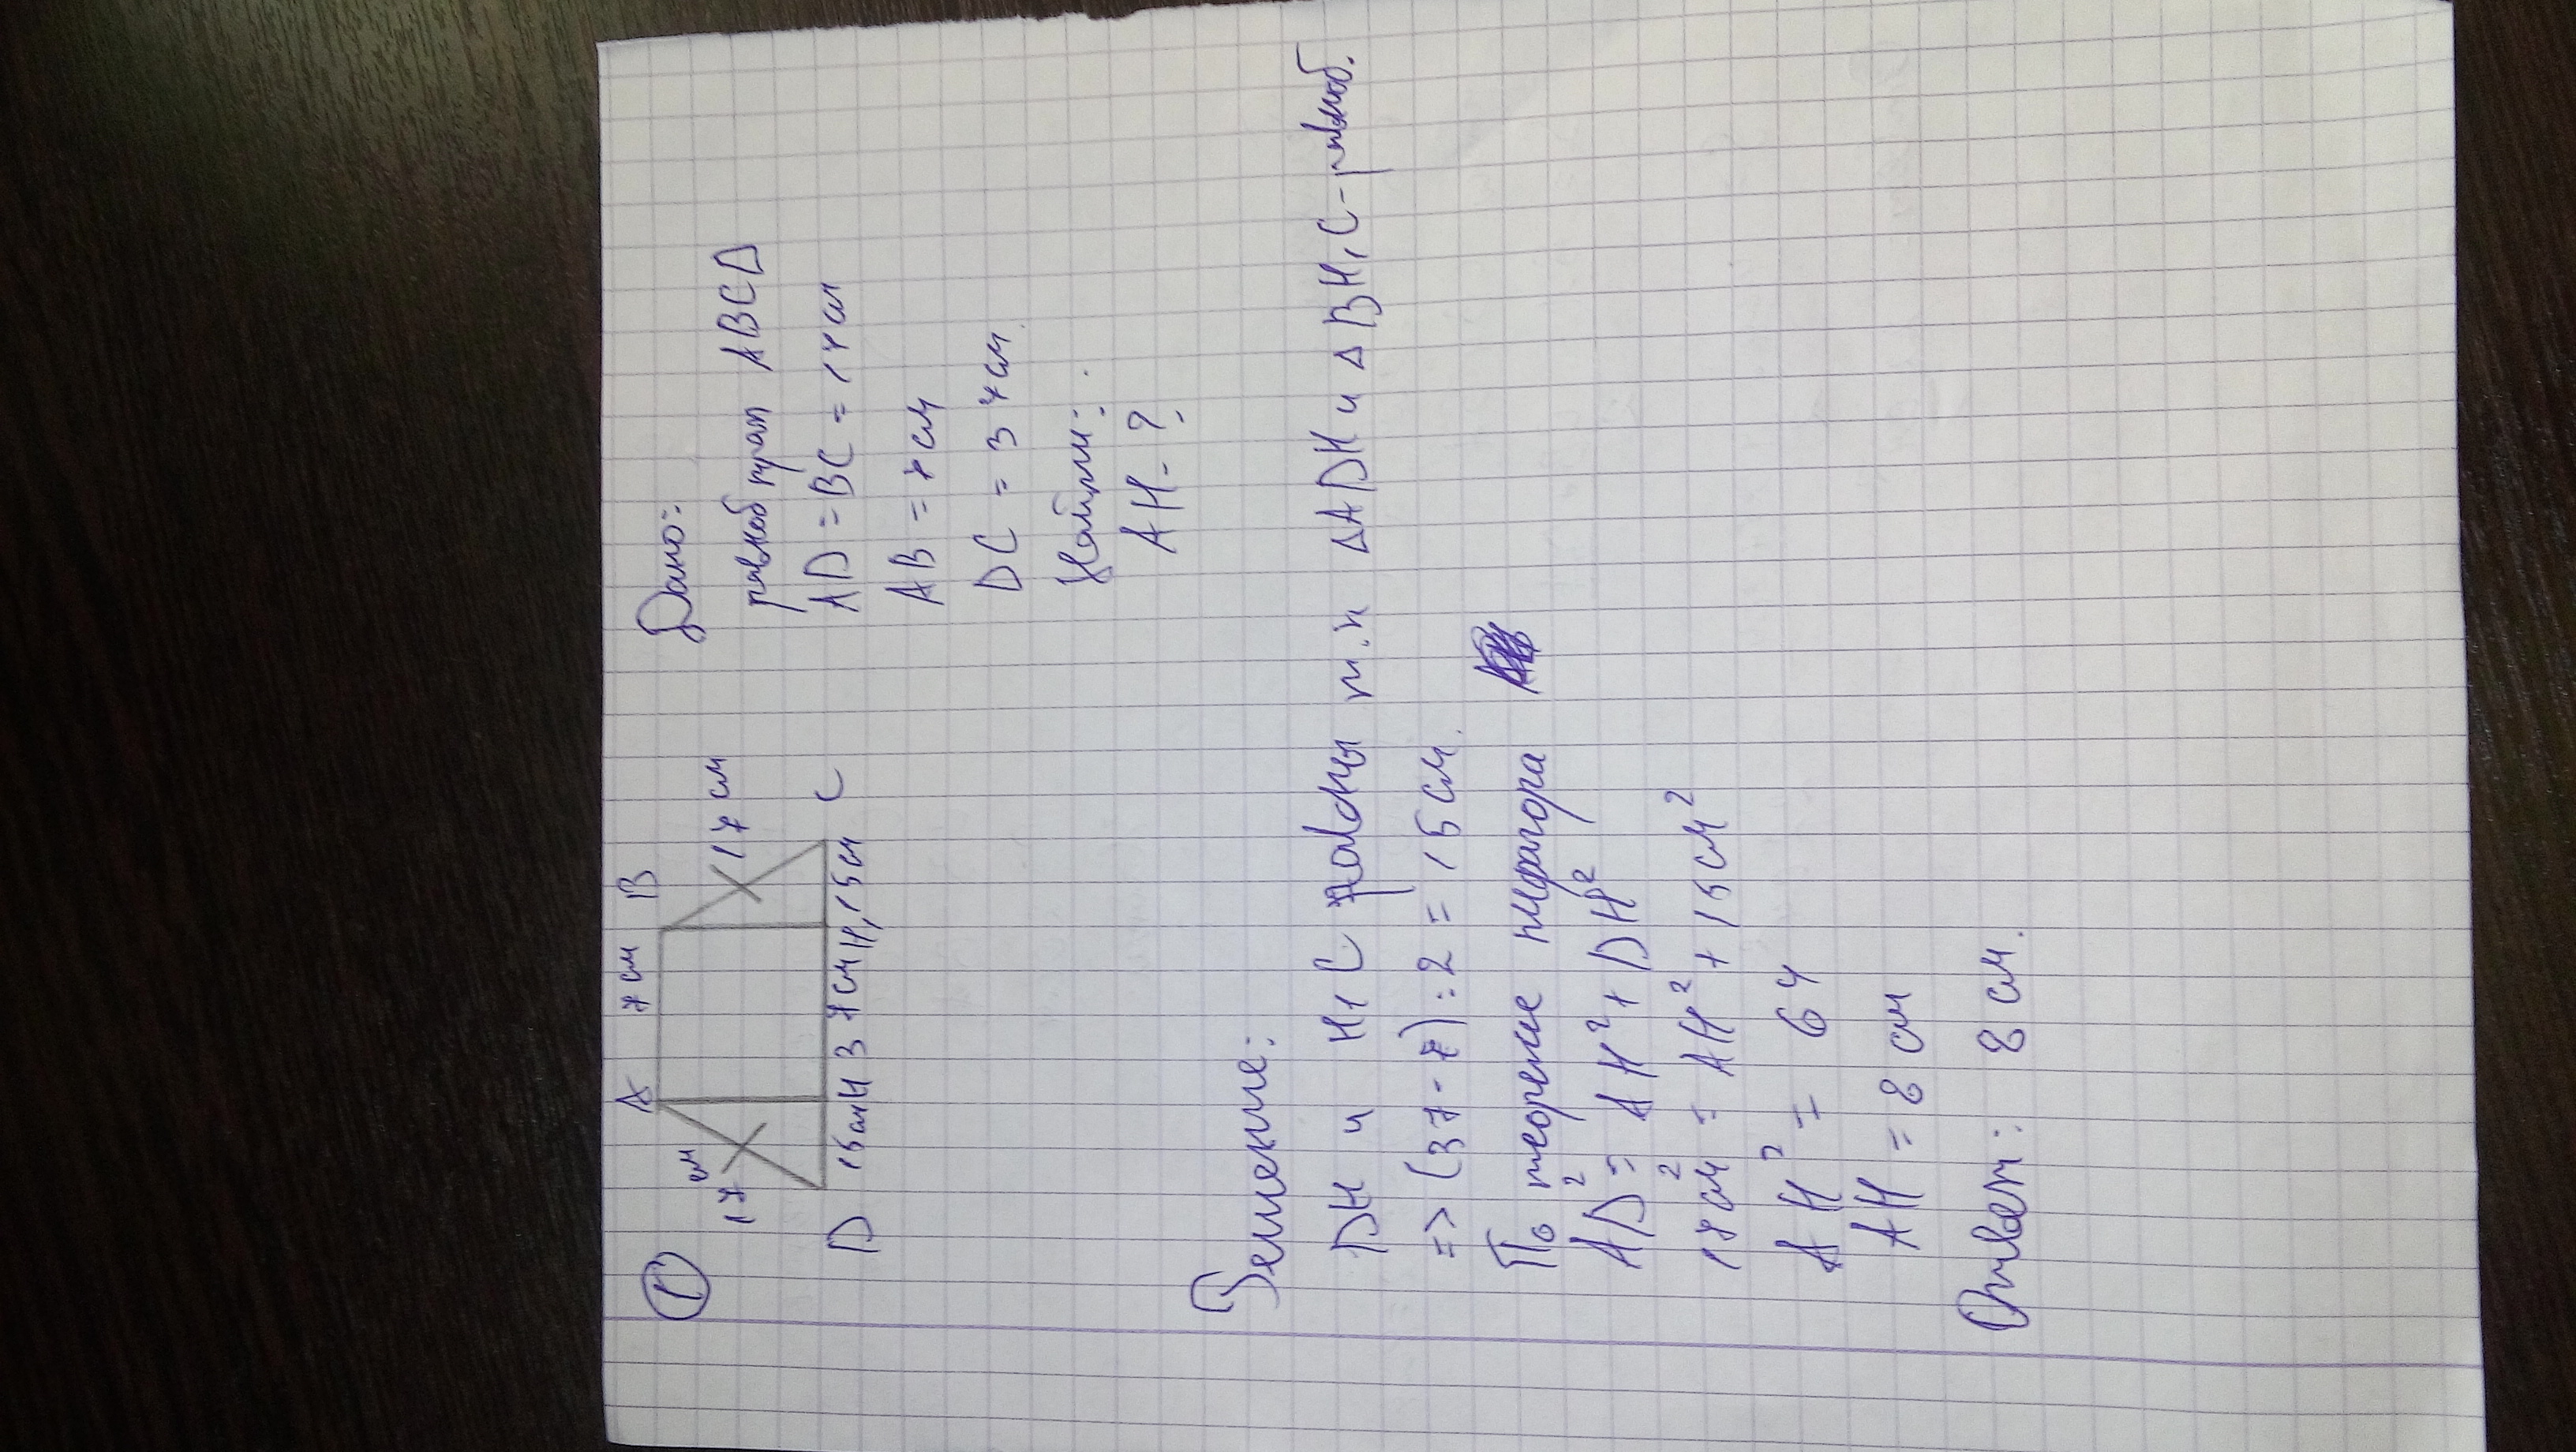 1
A 7 см B
17 см
17 см
D 15 см H 37 см H1 15 см C
Дано:
равноб трап ABCD
AD = BC = 17 см
AB = 7 см
DC = 37 см.
Найти:
AH - ?
Решение:
DH и H1C равны т.к ΔADH и ΔBH1C - равноб.
=> (37-7):2 = 15 см.
По теореме пифагора
AD² = AH² + DH²
17 см² = AH² + 15 см²
AH² = 64
AH = 8 см
Ответ: 8 см.